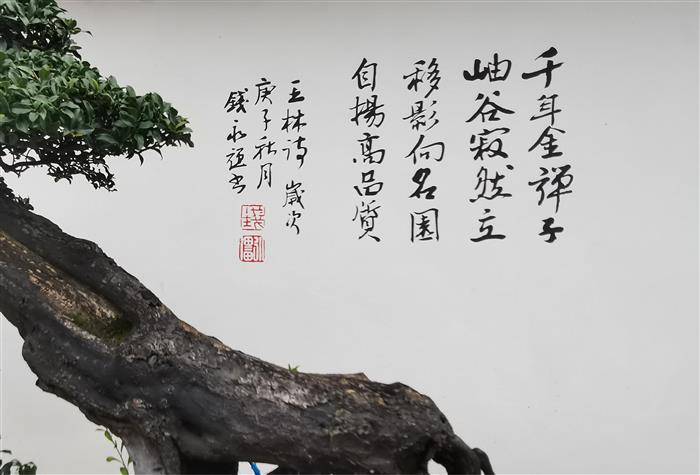 千年金弹子
岫谷寂然立
移影向名园
自扬高品质
王林诗 岁次
庚子秋月
钱永强书